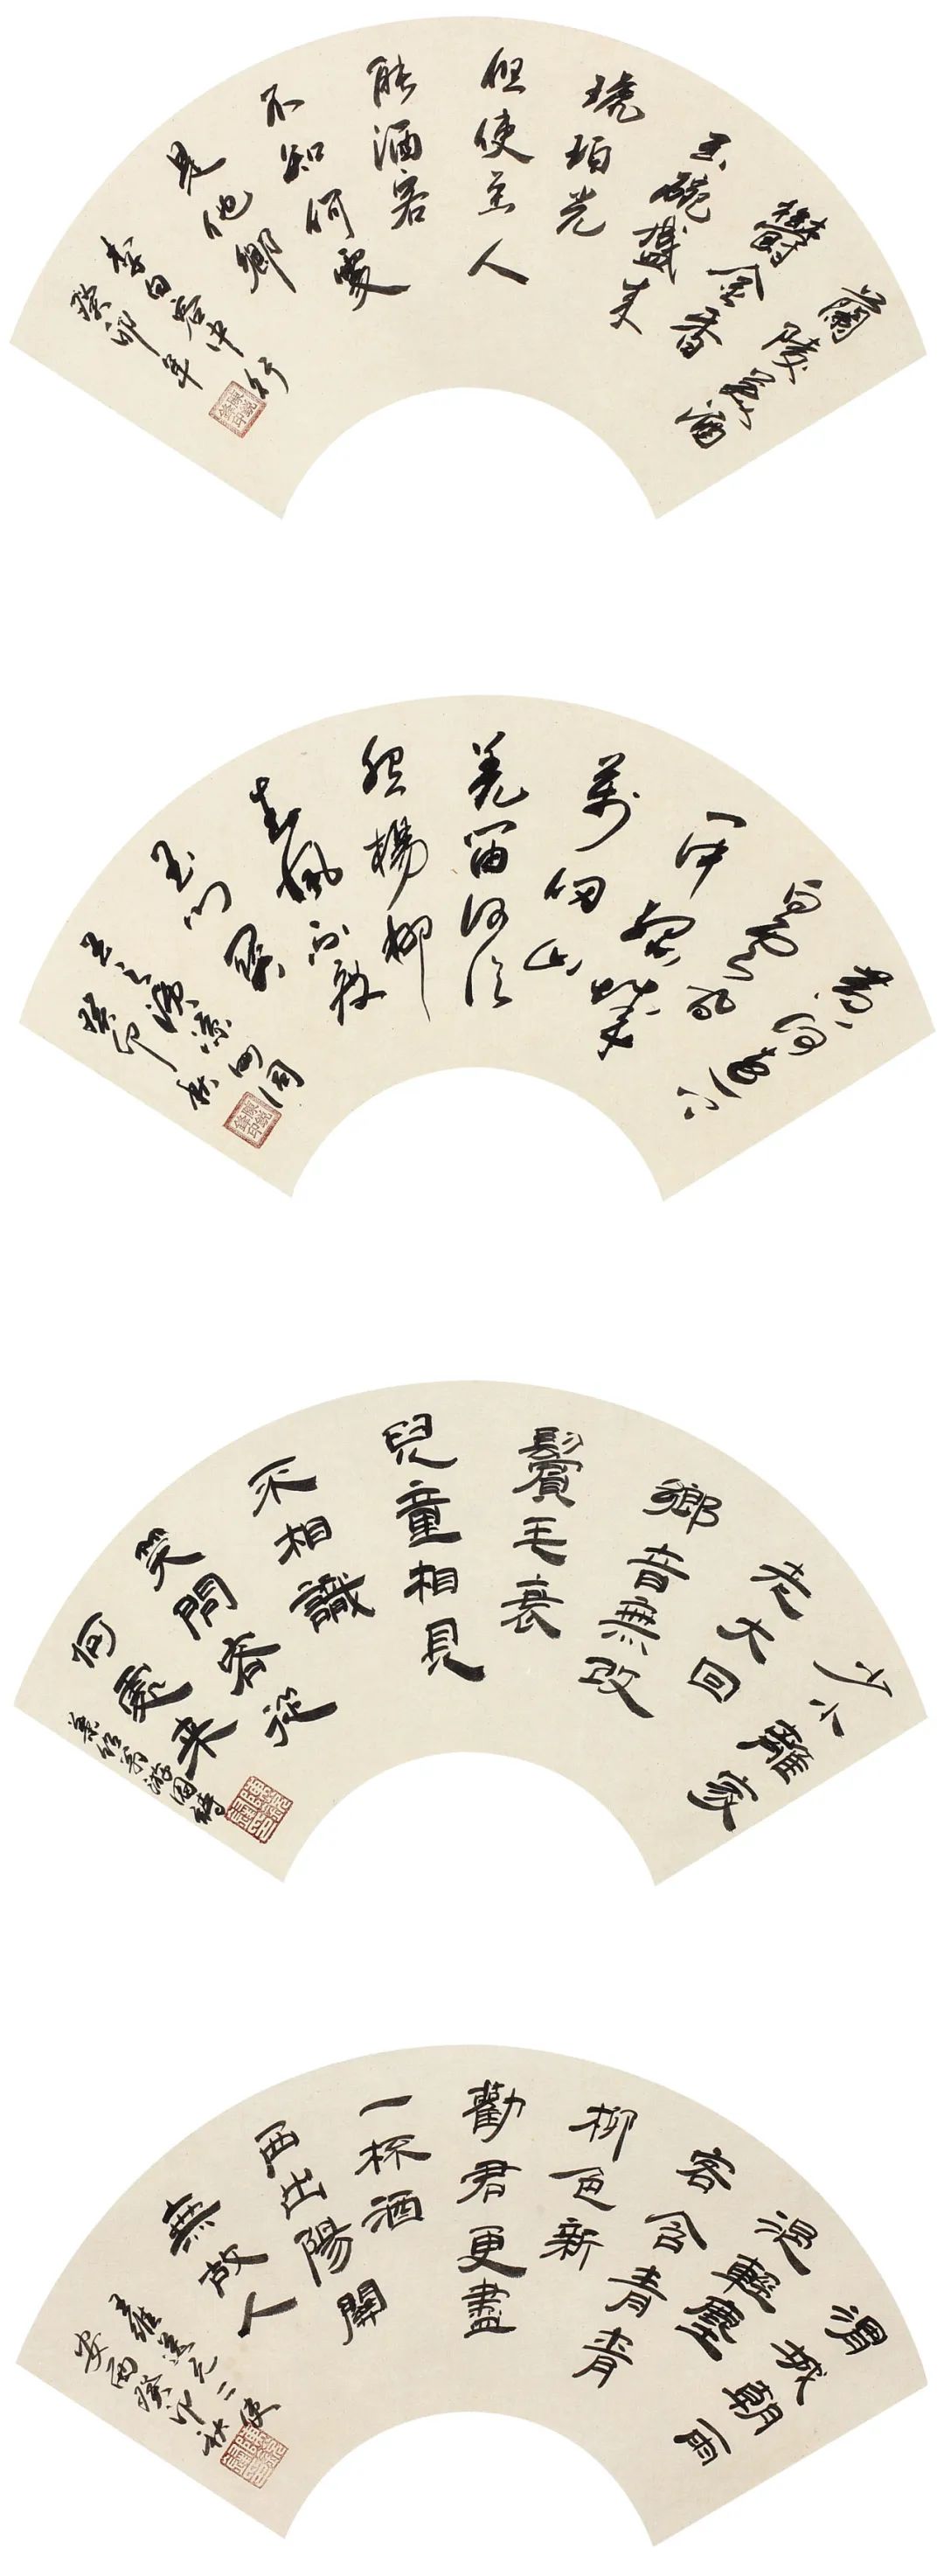 蘭陵美酒
鬱金香
玉碗盛来
琥珀光
但使主人
能酒客
不知何處
是他鄉
李白客中行
癸卯年
黄河遠上
白雲間
一片孤城
萬仞山
羌笛何須
怨楊柳
春風不度
玉門關
王之渙涼州詞
癸卯秋
少小離家
老大回
鄉音無改
鬢毛衰
兒童相見
不相識
笑問客從
何處来
葉紹翁游園
渭城朝雨
浥輕塵
客舍青青
柳色新
勸君更盡
一杯酒
西出陽關
無故人
王維送元二使
安西癸卯秋